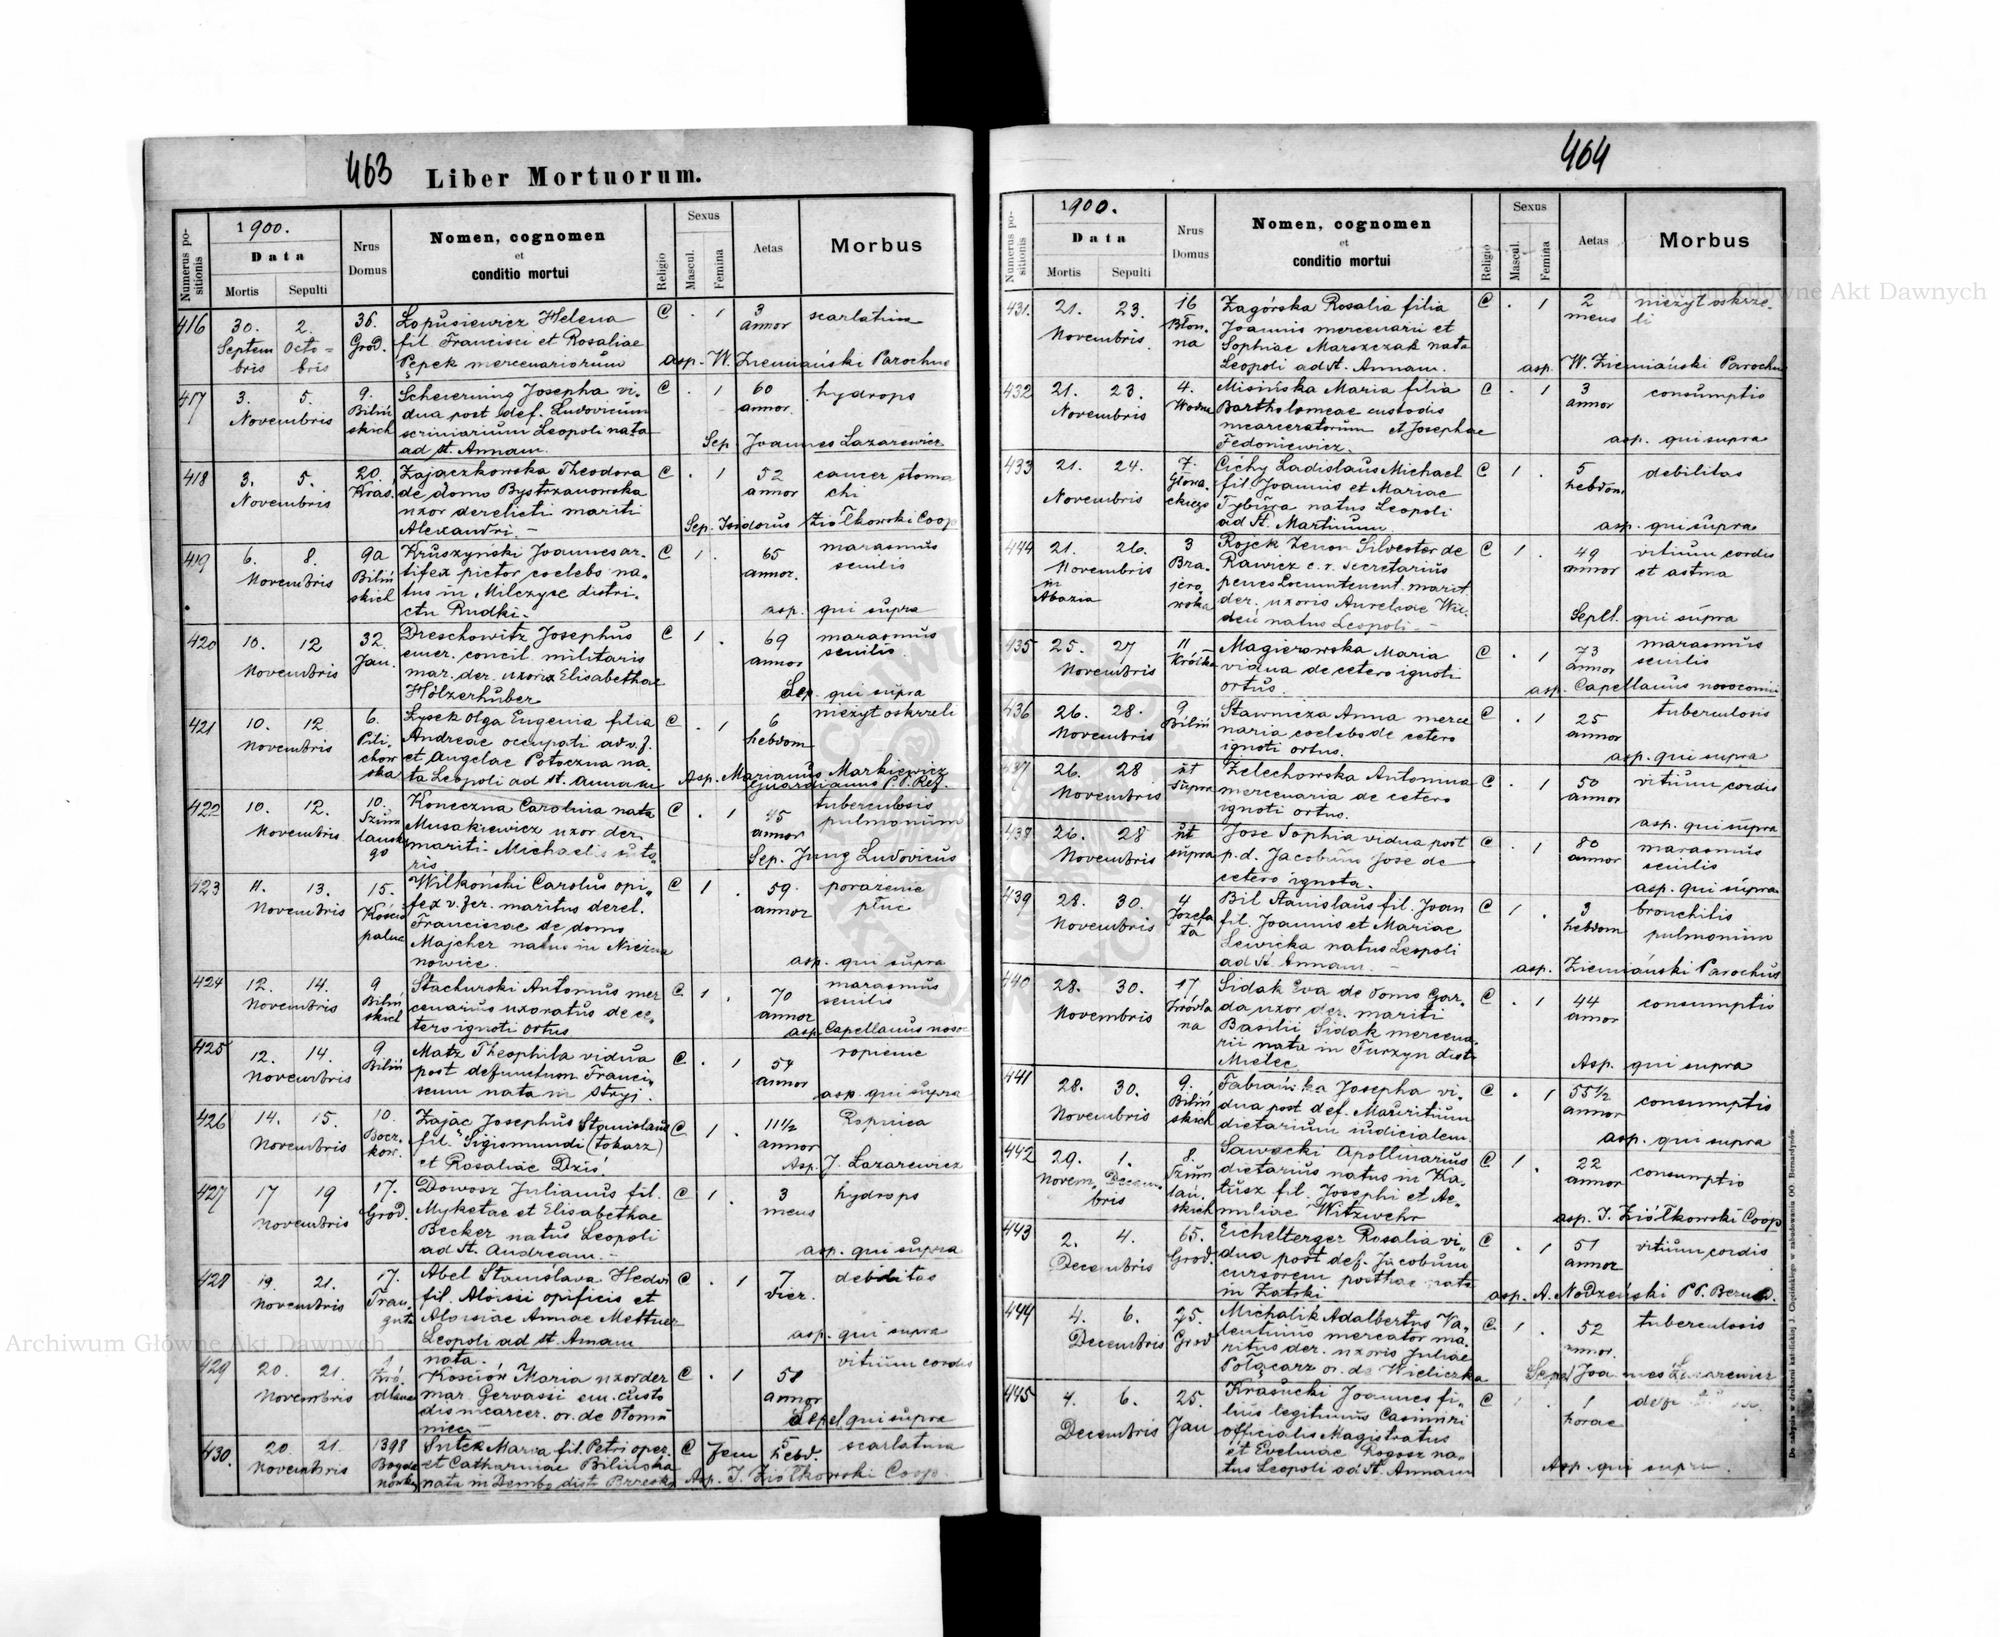 463 Liber Mortuorum.
Numerus positionis
1900.
Data
Mortis Sepulti
Nrus Domus
Nomen, cognomen
et
conditio mortui
Religio
Sexus
Mascul. Femina
Aetas
Morbus
416 30. 2. 36. Łopusiewicz Helena C . 1 3 scarlatina
Septem Octo= Grod. fil. Francisci et Rosaliae annor
bris bris Pępek mercenariorum asp. W. Ziemiański Parochus
417 3. 5. 9. Josepha vi- C . 1 60 hydrops
Novembris Biliń dua post def. Ludovicum annor.
skich scriniarium Leopoli nata Sep. Joannes Lazarewicz
ad st. Annam.
418 3. 5. 20. Zajączkowska Theodora C . 1 52 cancer stoma
Novembris Kras. de domo Bystrzanowska annor chi
uxor derelicti mariti Sep. Isidorus Ziółkowski Coop
Alexandri. -
419 6. 8. 9a Kruszyński Joannes ar- C 1 . 65 marasmus
Novembris Biliń tifex pictor coelebs na- annor. senilis
skich tus in Milczyce distri-
ctu Rudki. - asp. qui supra
420 10. 12 32. Dreschowitz Josephus C 1 . 69 marasmus
Novembris Jan. emer. concil. militaris annor senilis
mar. der. uxoris Elisabethae
Hölzerhuber Sep. qui supra
421 10. 12 6. Łysek Olga Eugenia filia C . 1 6 nieżyt oskrzeli
Novembris Pili- Andreae occupati ad v. f. hebdom
chow et Angelae Potoczna na-
ska ta Leopoli ad st. Annam Asp. Marianus Markiewicz
Guardianus P.P. Ref.
422 10. 12. 10. Koneczna Carolina nata C . 1 45 tuberculosis
Novembris Szum Musakiewicz uxor der. annor pulmonum
lańskie mariti Michaelis suto-
go ris Sep. Jung Ludovicus
423 11. 13. 15. Wilkoński Carolus opi- C 1 . 59. porażenie
Novembris Kościo fex v. fer. maritus derel. annor płuc
palna Franciscae de domo
Majcher natus in Niezna
nowice. asp. qui supra
424 12. 14. 9 Stachurski Antonius mer C 1 . 70 marasmus
Novembris Biliń cenarius uxoratus de ce- annor senilis
skich tero ignoti ortus asp. Capellanus nosoc
425 12. 14. 9 Matz Theophila vidua C . 1 54 ropienie
Novembris Biliń post defunctum Franci- annor
scum nata in Stryj. asp. qui supra
426 14. 15. 10. Zając Josephus Stanislaus C 1 . 11½ Ropnica
Novembris Bocz- fil. Sigismundi (tokarz) annor
kow. et Rosaliae Dzis. Asp. J. Lazarewicz
427 17 19 17. Dowosz Julianus fil. C 1 . 3 hydrops
Novembris Grod. Myketae et Elisabethae mens
Becker natus Leopoli
ad st. Andream. - asp. qui supra
428 19. 21. 17. Abel Stanislava Hedvi C . 1 7 debilitas
Novembris Fran- fil. Aloisii opificis et dier.
Aloisiae Annae Mettner
Leopoli ad st. Annam asp. qui supra
nata.
429 20. 21. Kościów Maria uxor der C . 1 58 vitium cordis
Novembris mar. Gervasii em. custo annor
dis incarcer. or. de Otom
nice Sepel. qui supra
430. 20. 21. 1398 Sutek Maria fil. Petri oper. C Fem 5 scarlatina
Novembris Bogda et Catharinae Bilińska hebd.
nówka nata in Dembo distr Brzesko Asp. I. Ziółkowski Coop.
464
Numerus positionis
1900.
Data
Mortis Sepulti
Nrus Domus
Nomen, cognomen
et
conditio mortui
Religio
Sexus
Mascul. Femina
Aetas
Morbus
431. 21. 23. 16 Zagórska Rosalia filia C . 1 2 nieżyt oskrze-
Novembris Błon- Joannis mercenarii et mens li
na Sophiae Marszczak nata
Leopoli ad st. Annam. asp. W. Ziemiański Parochus
432 21. 23. 4. Misińska Maria filia C . 1 3 consumptio
Novembris Wodna Bartholomeae custodis annor
incarceratorum et Josephae asp. qui supra
Fedoniewicz.
433 21. 24. 7. Cichy Ladislaus Michael C 1 . 5 debilitas
Novembris Głowa- fil. Joannis et Mariae hebdom
ckiego Tybura natus Leopoli
ad st. Martinum asp. qui supra
444 21. 26. 3 Rojek Zenon Silvester de C 1 . 49 vitium cordis
Novembris Bra- Rawicz c. r. secretarius annor et astma
in jero- penes Locumtenent. marit.
Abazia wska der. uxoris Aureliae Wil-
natus Leopoli - Sepll. qui supra
435 25. 27 11 Magierowska Maria C . 1 73 marasmus
Novembris Krótka vidua de cetero ignoti annor senilis
ortus. asp. Capellanus nosocomii
436 26. 28. 9 Stawnicza Anna merce C . 1 25 tuberculosis
Novembris Biliń naria coelebs de cetero annor
ignoti ortus. asp. qui supra
437 26. 28 ut Zelechowska Antonina C . 1 50 vitium cordis
Novembris supra mercenaria de cetero annor
ignoti ortus. asp. qui supra
438 26. 28 ut Jose Sophia vidua post C . 1 80 marasmus
Novembris supra p. d. Jacobum Jose de annor senilis
cetero ignota. asp. qui supra
439 28. 30. 4 Bil Stanislaus fil. Joan C 1 . 3 bronchitis
Novembris Jozefa fil. Joannis et Mariae hebdom pulmonum
ta Lewicka natus Leopoli
ad st. Annam. - asp. Ziemiański Parochus
440 28. 30. 17 Sidak Eva de domo Gar- C . 1 44 consumptio
Novembris Źródla da uxor der. mariti annor
na Basilii Sidak mercena-
rii nata in Turzyn distr
Mielec Asp. qui supra
441 28. 30. 9. Fabiańska Josepha vi- C . 1 55½ consumptio
Novembris Biliń dua post def. Mauritium annor
skich dietarium iudicialem. asp. qui supra
442 29. 1. 8. Sawacki Apollinarius C 1 . 22 consumptio
Novem- Decem- Szum dietarius natus in Ka- annor
bris lań- łusz fil. Josephi et Ae-
skich miliae Witzwehr asp. I. Ziółkowski Coop
443 2. 4. 65. Eichelterger Rosalia vi- C . 1 51 vitium cordis
Decembris Grod. dua post def. Jacobum annor
cursorem posthae nata
in Zatoki asp. A. Nodzeński P.P. Bernard.
444 4. 6. 25. Michalik Adalbertus Va- C 1 . 52 tuberculosis
Decembris Grod lentinus mercator ma- annor.
ritus der. uxoris Juliae
Połącarz or. de Wieliczka Sepel Joannes Lazarewicz
445 4. 6. 25. Krasucki Joannes fi- C 1 . 1
Decembris Jan lius legitimus Casimiri horae
officialis Magistratus
et Evelinae Rogosz na-
tus Leopoli ad st. Annam Asp. qui supra.
Do nabycia w drukarni katolickiej J. Chęcińskiego w zabudowaniu OO. Bernardynów.
Archiwum Główne Akt Dawnych
Archiwum Główne Akt Dawnych